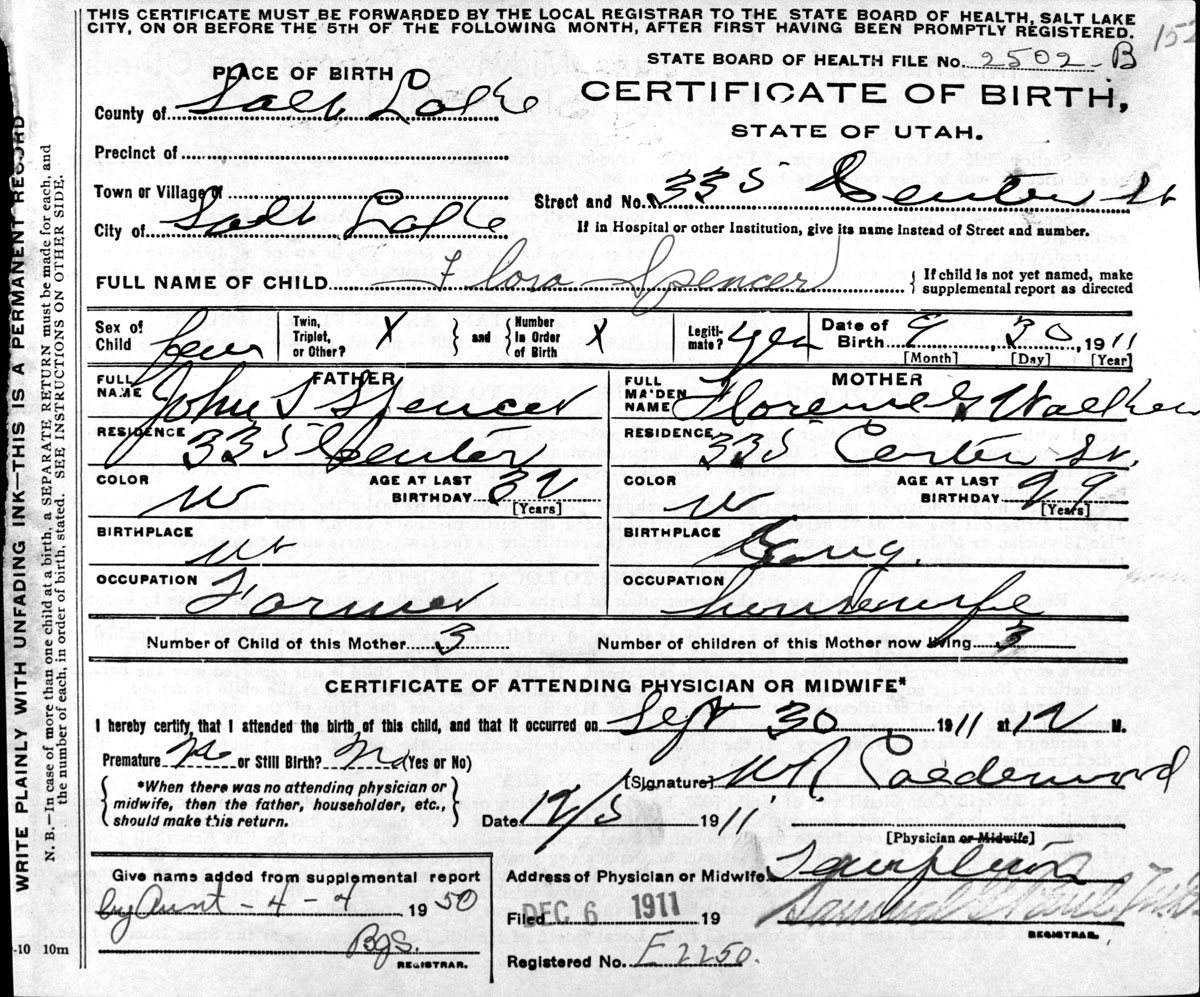 THIS CERTIFICATE MUST BE FORWARDED BY THE LOCAL REGISTRAR TO THE STATE BOARD OF HEALTH, SALT LAKE
CITY, ON OR BEFORE THE 5TH OF THE FOLLOWING MONTH, AFTER FIRST HAVING BEEN PROMPTLY REGISTERED.
152
STATE BOARD OF HEALTH FILE No. 2502-B
PLACE OF BIRTH
CERTIFICATE OF BIRTH,
STATE OF UTAH.
County of Salt Lake
Precinct of
Town or Village of
Street and No. 335 Center St
City of Salt Lake
If in Hospital or other Institution, give its name instead of Street and number.
FULL NAME OF CHILD Flora Spencer { If child is not yet named, make
supplemental report as directed
Sex of Child Fem
Twin, Triplet, or Other? X } and { Number In Order of Birth X
Legitimate? yes
Date of Birth 9 30 1911
[Month] [Day] [Year]
FATHER
FULL NAME John S Spencer
RESIDENCE 335 Center
COLOR W AGE AT LAST BIRTHDAY 32
[Years]
BIRTHPLACE Ut
OCCUPATION Farmer
MOTHER
FULL MAIDEN NAME Florence G Walker
RESIDENCE 335 Center St.
COLOR W AGE AT LAST BIRTHDAY 29
[Years]
BIRTHPLACE Eng.
OCCUPATION housewife
Number of Child of this Mother 3 Number of children of this Mother now living 3
CERTIFICATE OF ATTENDING PHYSICIAN OR MIDWIFE*
I hereby certify, that I attended the birth of this child, and that it occurred on Sept 30 1911 at 12 M.
Premature no or Still Birth? No (Yes or No)
{ *When there was no attending physician or
midwife, then the father, householder, etc.,
should make this return. }
[Signature] Calderwood
Date 12/5 1911
[Physician or Midwife]
Address of Physician or Midwife Templeton
Filed DEC 6 1911 19
REGISTRAR.
Registered No. E2250.
Give name added from supplemental report
by Aunt - 4 - 4 1950
REGISTRAR.
-10 10m
WRITE PLAINLY WITH UNFADING INK—THIS IS A PERMANENT RECORD
N. B.—In case of more than one child at a birth, a SEPARATE RETURN must be made for each, and
the number of each, in order of birth, stated. SEE INSTRUCTIONS ON OTHER SIDE.